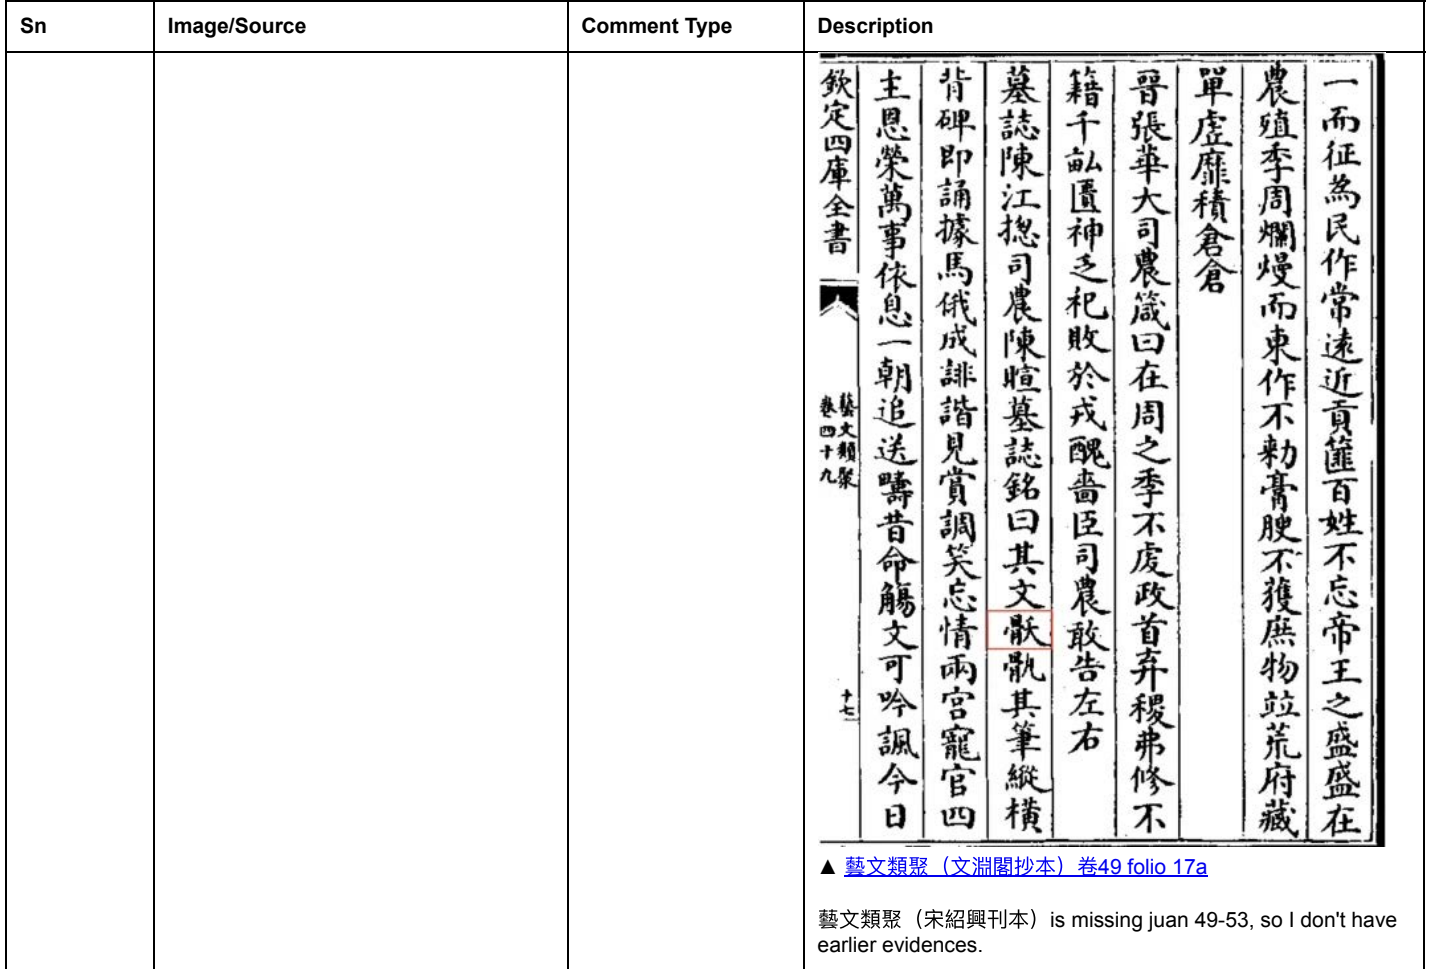 Sn Image/Source Comment Type Description
一而征為民作常遠近貢篚百姓不忘帝王之盛盛在
農殖季周爛熳而東作不勑膏腴不獲庶物竝荒府藏
單虛靡積倉倉
晉張華大司農箴曰在周之季不虔政首弃稷弗修不
籍千畝匱神乏祀敗於戎醜嗇臣司農敢告左右
墓誌陳江揔司農陳暄墓誌銘曰其文骫其筆縱橫
背碑即誦據馬俄成誹諧見賞調笑忘情兩宮寵官四
主恩榮萬事依息一朝追送疇昔命觴文可吟諷今日
欽定四庫全書
藝文類聚
卷四十九
十七
▲ 藝文類聚（文淵閣抄本）卷49 folio 17a
藝文類聚（宋紹興刊本）is missing juan 49-53, so I don't have
earlier evidences.